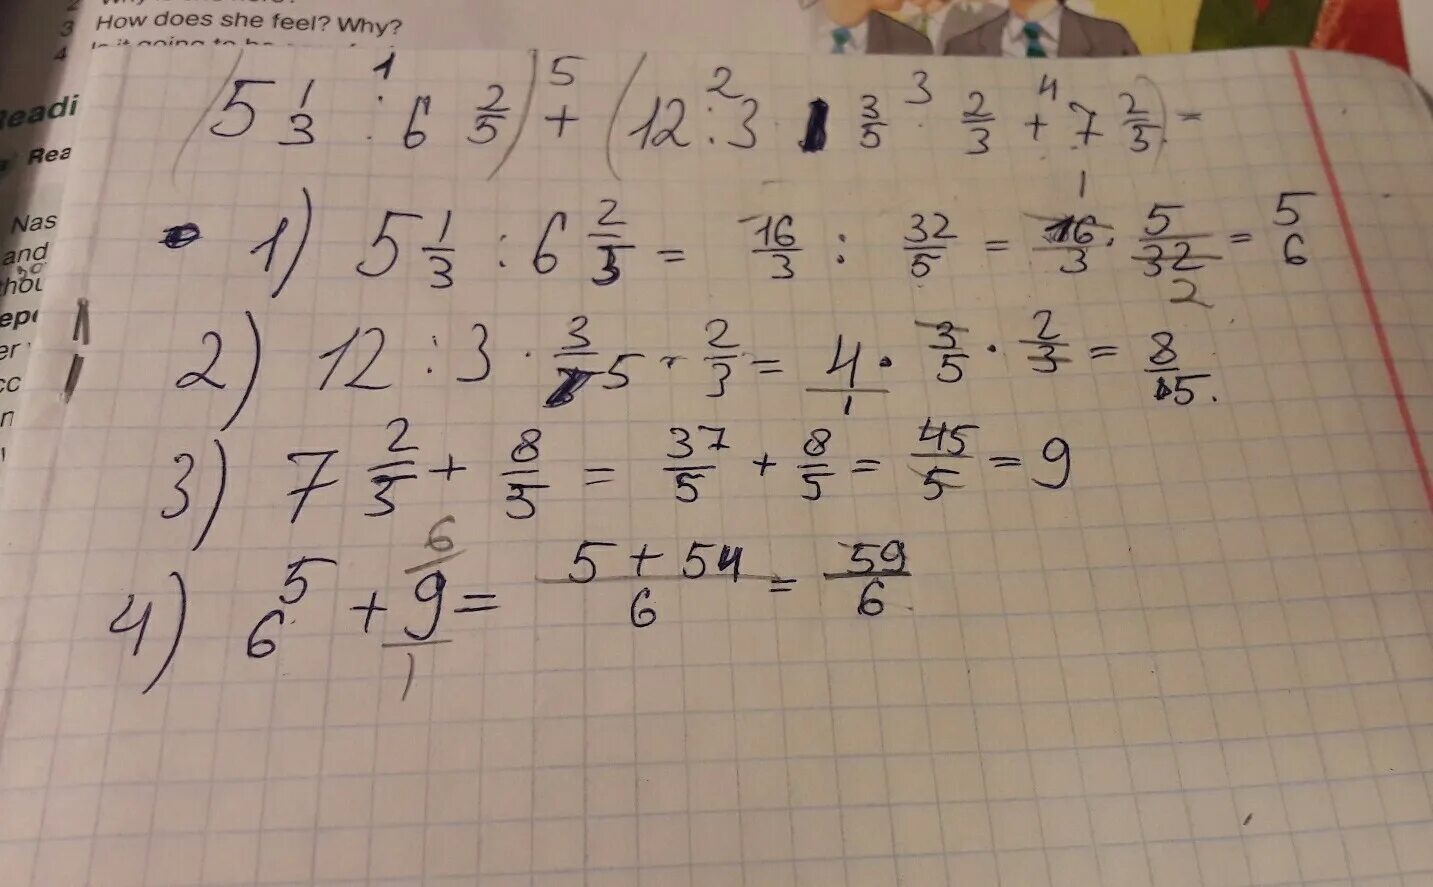 3 How does she feel? Why?
4
Readi
Rea
Nas
and
thou
(5 1/3 : 6 2/5) + (12 : 3 · 3/5 · 2/3 + 7 2/5) =
1 5 2 3 4
1) 5 1/3 : 6 2/5 = 16/3 : 32/5 = 16/3 · 5/32 = 5/6
1 2
2) 12 : 3 · 3/5 · 2/3 = 4/1 · 3/5 · 2/3 = 8/5.
3) 7 2/5 + 8/5 = 37/5 + 8/5 = 45/5 = 9
6
4) 5/6 + 9/1 = 5 + 54/6 = 59/6